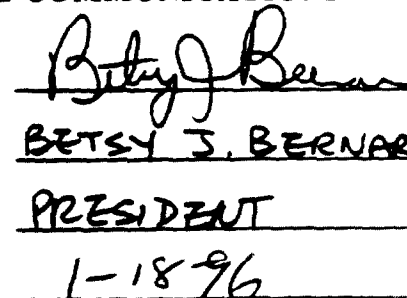 Betsy J Bernar
BETSY J. BERNAR
PRESIDENT
1-18-96